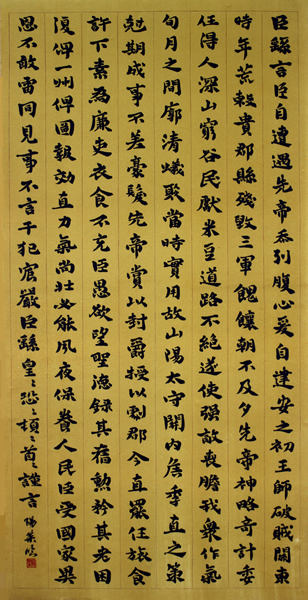 臣繇言臣自遭遇先帝忝列腹心爰自建安之初王師破賊關東
時年荒穀貴郡縣殘毀三軍餽饟朝不及夕先帝神略奇計委
任得人深山窮谷民獻米豆道路不絕遂使强敵喪膽我衆作氣
旬月之間廓清蟻聚當時實用故山陽太守關內侯季直之策
尅期成事不差豪髮先帝賞以封爵授以劇郡今直罷任旅食
許下素為廉吏衣食不充臣愚欲望聖德錄其舊勳矜其老困
復俾一州俾圖報效直力氣尚壯必能夙夜保養人民臣受國家異
恩不敢雷同見事不言干犯宸嚴臣繇皇〻恐〻頓〻首〻謹言